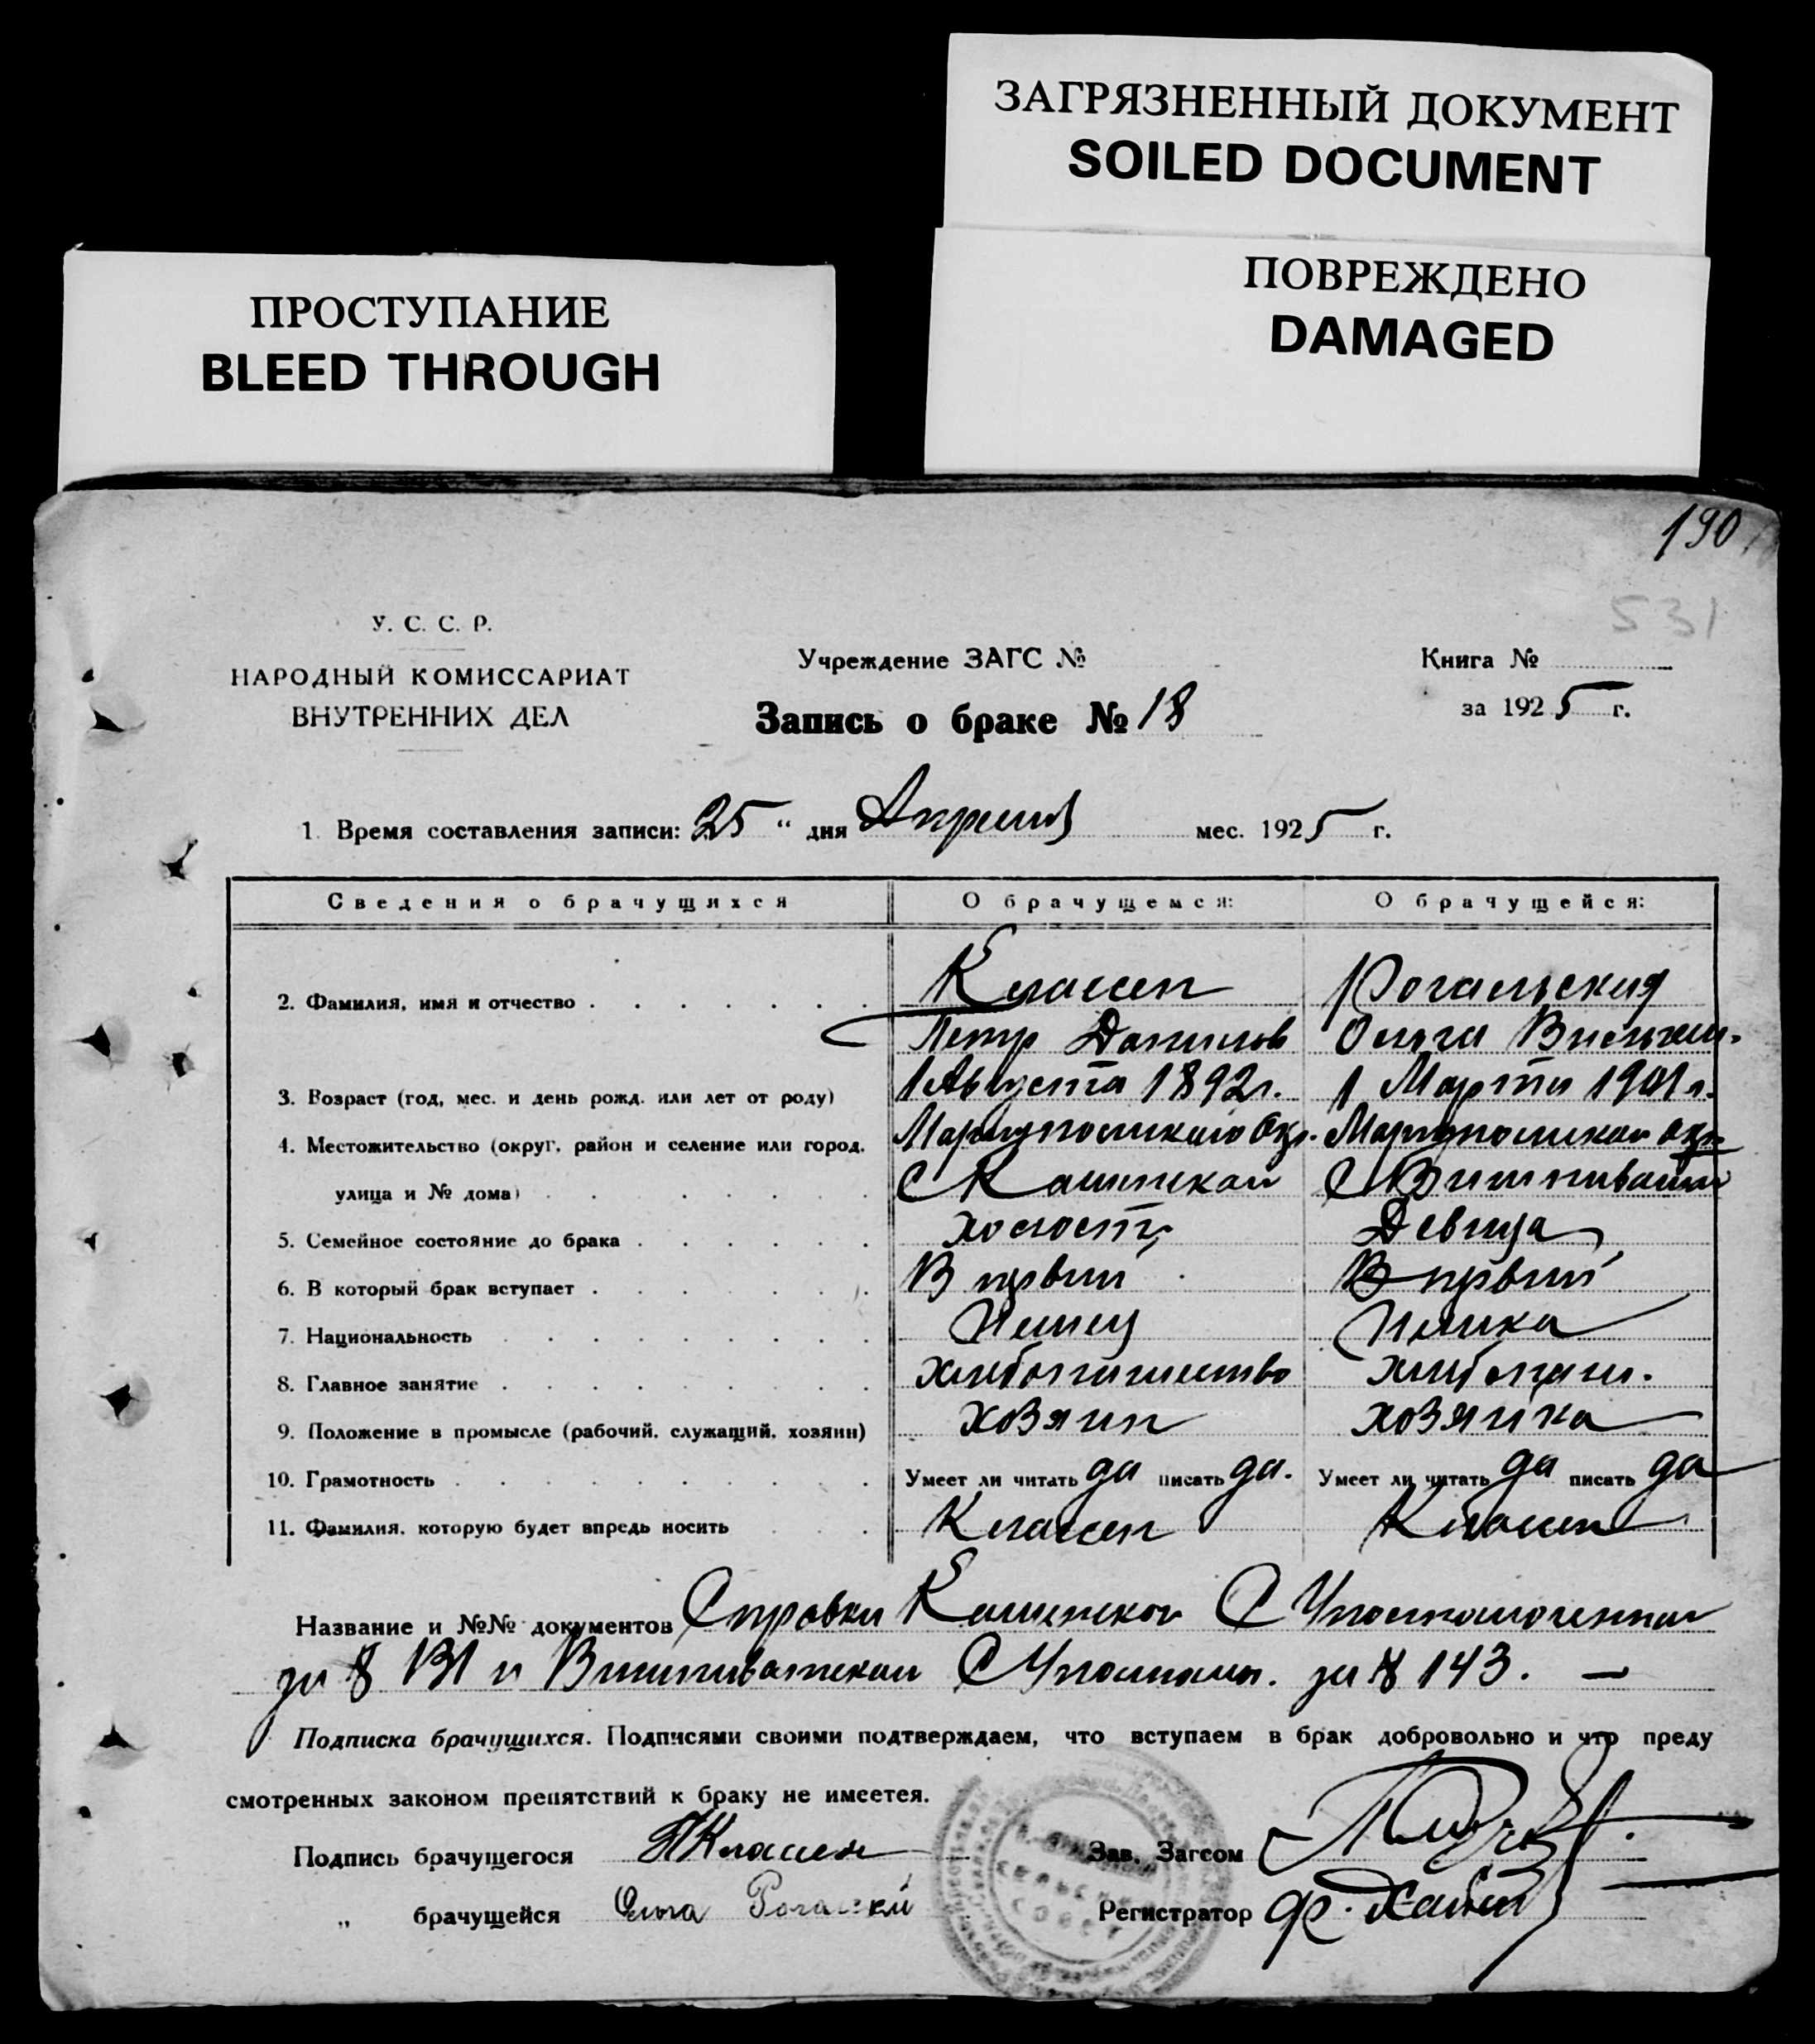 ЗАГРЯЗНЕННЫЙ ДОКУМЕНТ
SOILED DOCUMENT
ПОВРЕЖДЕНО
DAMAGED
ПРОСТУПАНИЕ
BLEED THROUGH
190
531
У. С. С. Р.
НАРОДНЫЙ КОМИССАРИАТ
ВНУТРЕННИХ ДЕЛ
Учреждение ЗАГС №
Книга №
за 1925 г.
Запись о браке № 18
1 Время составления записи: 25 " дня Апреля мес. 1925 г.
Сведения о брачущихся О брачущемся: О брачущейся:
2. Фамилия, имя и отчество Классен Рогальская
Петр Данилов Ольга Вильгельм.
3. Возраст (год, мес. и день рожд. или лет от роду) 1 Августа 1892 г. 1 Марта 1901 г.
4. Местожительство (округ, район и селение или город, Мариупольского Окр. Мариупольской окр
улица и № дома)
5. Семейное состояние до брака холост Девица
6. В который брак вступает В первый В первый
7. Национальность Немец Немка
8. Главное занятие хлебопашество хлебопаш.
9. Положение в промысле (рабочий, служащий, хозяин) хозяин хозяйка
10. Грамотность Умеет ли читать да писать да. Умеет ли читать да писать да
11. Фамилия, которую будет впредь носить Классен Классен
Название и №№ документов Справки С
за № 131 и С за № 143. —
Подписка брачущихся. Подписями своими подтверждаем, что вступаем в брак добровольно и что преду
смотренных законом препятствий к браку не имеется.
Подпись брачущегося ПКлассен Зав. Загсом
„ брачущейся Ольга Регистратор